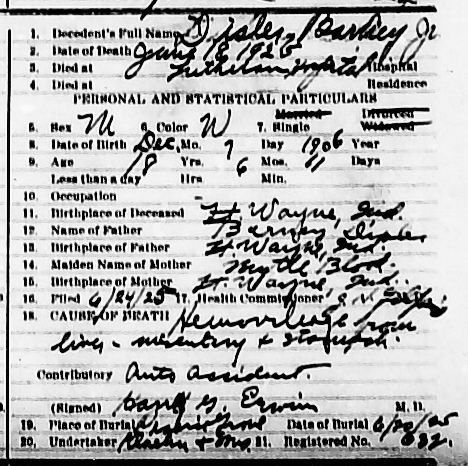 1. Decedent's Full Name Disler, Barney Jr
2. Date of Death June 18 1925
3. Died at Lutheran Hospital Hospital
4. Died at Residence
PERSONAL AND STATISTICAL PARTICULARS
Married Divorced
5. Sex M 6. Color W 7. Single Widowed
8. Date of Birth Dec. Mo. 7 Day 1906 Year
9. Age 18 Yrs. 6 Mos. 11 Days
Less than a day Hrs. Min.
10. Occupation -
11. Birthplace of Deceased Ft Wayne, Ind.
12. Name of Father Barney Disler
13. Birthplace of Father Ft Wayne, Ind.
14. Maiden Name of Mother Myrtle Blood
15. Birthplace of Mother Ft. Wayne, Ind.
16. Filed 6/24/25 17. Health Commissioner
18. CAUSE OF DEATH Hemorrhage from
liver - mesentery & stomach.
Contributory Auto Accident.
(Signed) G. Erwin M. D.
19. Place of Burial Date of Burial 6/20/25
20. Undertaker & 21. Registered No. 632